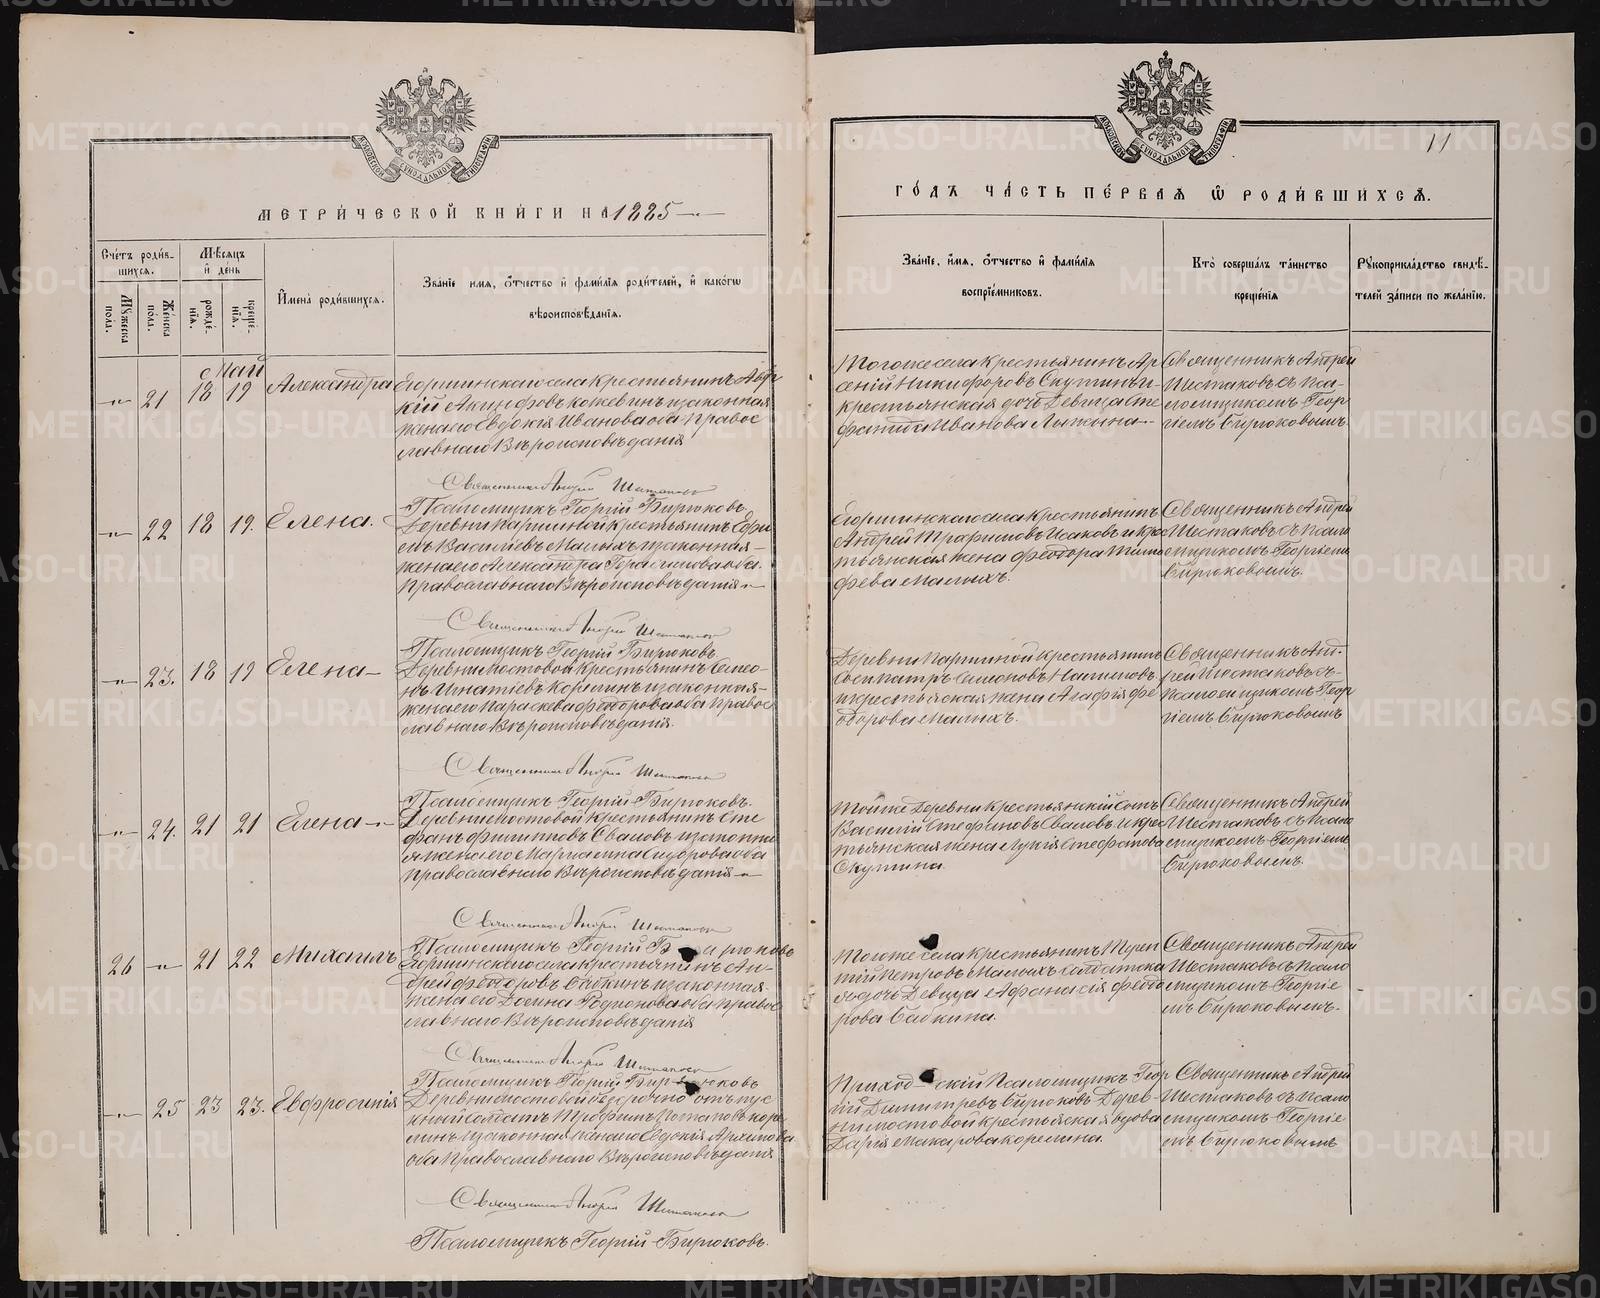 МЕТРИ́ЧЕСКОЙ КНИ́ГИ НА 1885
Сче́тъ роди́в-
шихся.
Му́жеска
по́ла.
Же́нска
по́ла.
Мѣ́сяцъ
и҆ де́нь
рожде-
нїѧ.
креще-
нїѧ.
И҆мена̀ роди́вшихся.
Зва́нїе имѧ, ѻ҆́тчество и҆ фами́лїѧ роди́телей, и҆ како́гѡ
вѣроисповѣ́данїѧ.
Май
21 18 19 Александра
Егоршинскаго села крестьянинъ
кій Акинфовъ Кожевинъ и законная
жена его Евдокія Иванова оба Правос
лавнаго Вѣроисповѣданія
Священникъ Андрей Шестаковъ
Псаломщикъ Георгій Бирюковъ
22 18 19. Елена.
Деревни Паршиной крестьянинъ Ефи
мъ Васильевъ Малыхъ и законная
жена его Александра Герасимова оба
Православнаго Вѣроисповѣданія
Священникъ Андрей Шестаковъ
Псаломщикъ Георгій Бирюковъ.
23. 18 19 Елена
Деревни Мостовой Крестьянинъ Симео-
нъ Игнатіевъ Корелинъ и законная
жена его Параскева Феодорова оба Правос
лавнаго Вѣроисповѣданія.
Священникъ Андрей Шестаковъ
Псаломщикъ Георгій Бирюковъ.
24. 21 21 Елена
Деревни Мостовой Крестьянинъ Сте
фанъ Филипповъ Сваловъ и законна
я жена его Маріамна Сидорова оба
Православнаго Вѣроисповѣданія
Священникъ Андрей Шестаковъ
Псаломщикъ Георгій Бирюковъ
26 21 22 Михаилъ
Егоршинскаго села крестьянинъ Ан-
дрей Феодоровъ Бабкинъ и законная
жена его Домна Родіонова оба Правос
лавнаго Вѣроисповѣданія
Священникъ Андрей Шестаковъ
Псаломщикъ Георгій Бирюковъ
25 23 23. Евфросинія
Деревни Мостовой безсрочно отпус
кный солдатъ Трофимъ Потаповъ Коре
линъ и законная жена его Евдокія Архипова
оба Православнаго Вѣроисповѣданія
Священникъ Андрей Шестаковъ
Псаломщикъ Георгій Бирюковъ.
11
ГО́ДЪ ЧА́СТЬ ПЕ́РВАЯ Ѿ РОДИ́ВШИХСЯ.
Зва́нїе, и҆́мѧ, ѻ҆́тчество и҆ фами́лїѧ
воспрїе́мниковъ.
Кто̀ соверша́лъ та́инство
креще́нїѧ
Рꙋкоприкла́дство свидѣ́-
телей за́писи по жела́нїю.
Тогоже села Крестьянинъ Ар
сеній Никифоровъ Скутинъ и
крестьянская дочь Девица Сте
фанида Иванова Лыжина
Священникъ Андрей
Шестаковъ съ Пса-
ломщикомъ Геор
гіемъ Бирюковымъ
Егоршинскаго села крестьянинъ
Андрей Трофимовъ Исаковъ и кре
тьянская жена Феодора Тимо
фѣева Малыхъ.
Священникъ Андрей
Шестаковъ съ Псало
мщикомъ Георгіемъ
Бирюковымъ.
Деревни Паршиной крестьянинъ
Сосипатръ Симеоновъ
и крестьянская жена Агафія Фе
одорова Малыхъ.
Священникъ Анд-
рей Шестаковъ съ
Псаломщикомъ Геор
гіемъ Бирюковымъ
Тойже Деревни Крестьянскій сынъ
Василій Стефановъ Сваловъ и крес
тьянская жена Лукія Стефанова
Скутина.
Священникъ Андрей
Шестаковъ съ Псало
мщикомъ Георгіемъ
Бирюковымъ.
Тогоже села Крестьянинъ Терен
тій Петровъ Малыхъ и солдатска
я дочь Девица Афанасія Феодо
рова Бабкина.
Священникъ Андрей
Шестаковъ съ Псало
мщикомъ Георгіе
мъ Бирюковымъ.
Приходскій Псаломщикъ Геор
гій Димитріевъ Бирюковъ Дерев-
ни Мостовой крестьянская вдова
Дарія Макарова Корелина.
Священникъ Андрей
Шестаковъ съ Псало
мщикомъ Георгіе
мъ Бирюковымъ
METRIKI.GASO-URAL.RU